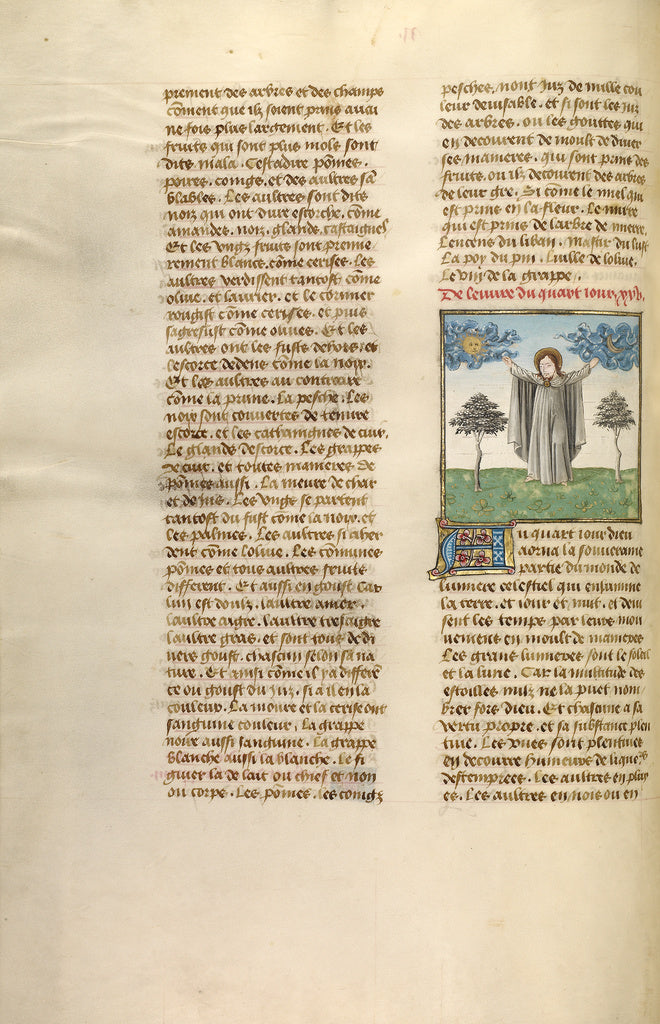 prement des arbres et des champs
cōment que ilz soient prins aucu
ne fois plus largement. Et les
fruits qui sont plus mols sont
dits mala. Cestadire pōmes.
poires. coings. et des aultres sā
blables. Les aultres sont dits
noix qui ont dure escorche. cōme
amandes. noix. glands. castaignes
Et les vngz fruits sont premie
rement blancs. cōme cerises. Les
aultres verdissent tantost cōme
oliue. et laurier. et le cormier
rougist cōme cerises. et puis
cōme oliues. Et les
aultres ont les fusts dehors. et
lescorce dedens cōme la noix.
Et les aultres au contraire
cōme la prune. La pesche. Les
noix sont couuertes de tenure
escorce. et les de cuir.
Le glands descorce. Les grappes
de cuir. et toutes manieres de
pōmes aussi. La meure de char
et de ius. Les vngs se partent
tantost du fust cōme la noix. et
les palmes. Les aultres si aher
dent cōme loliue. Les cōmunes
pōmes et tous aultres fruits
different. Et aussi en goust Car
lun est doulz. laultre amer.
laultre aigre. laultre tresaigre
laultre gras. et sont tous de di
uers goust. chascun selon sa na
ture. Et ainsi cōme il ya differē
ce ou goust du iuz. si a il en la
couleur. La moure et la cerise ont
sanguine couleur. La grappe
noire aussi sanguine. La grappe
blanche aussi la blanche. Le fi
guier la de lait ou chief et non
ou corps. Les pōmes. les coings
pesches. nont iuz de mille cou
leur deuisable. et si sont les iuz
des arbres. ou les gouttes qui
en decourent de moult de diuer
ses manieres. qui sont prins des
fruits. ou ilz decourent des arbres
de leur gre. Si cōme le miel qui
est prins en la fleur. Le mirre
qui est prins de larbre de mirre.
Lencens du liban. Mastic du
La poy du pin. Luille de loliue.
Le vin de la grappe.
De leuure du quart iour. xxvj.
Au quart iour dieu
aorna la souueraine
partie du monde de
lumiere celestiel qui enlumine
la terre. et iour et nuit. et deui
sent les temps par leurs mou
uemens en moult de manieres
Les grans lumieres sont le soleil
et la lune. Car la multitude des
estoilles nulz ne la puet nom
brer fors dieu. Et chascune a sa
vertu propre. et sa substance plen
tiue. Les vnes sont plentiues
en decourre humeurs de liqueurs
destemprees. Les aultres en pluy
es. Les aultres en nois ou en